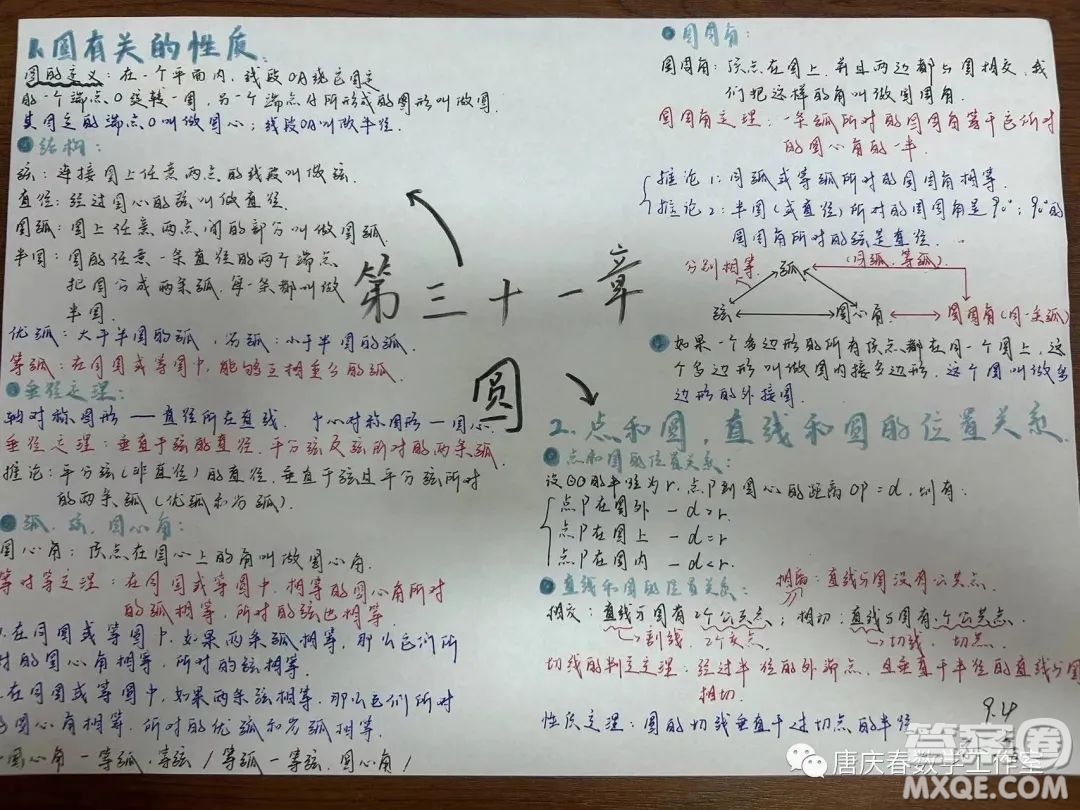 1.圆有关的性质.
圆的定义：在一个平面内，线段OA绕它固定
的一个端点O旋转一周，另一个端点A所形成的图形叫做圆.
其固定的端点O叫做圆心；线段OA叫做半径.
结构：
弦：连接圆上任意两点的线段叫做弦.
直径：经过圆心的弦叫做直径.
圆弧：圆上任意两点间的部分叫做圆弧.
半圆：圆的任意一条直径的两个端点
把圆分成两条弧，每一条都叫做
半圆.
优弧：大于半圆的弧，劣弧：小于半圆的弧.
等弧：在同圆或等圆中，能够互相重合的弧.
垂径定理：
轴对称图形 — 直径所在直线. 中心对称图形 — 圆心
垂径定理：垂直于弦的直径，平分弦及弦所对的两条弧.
推论：平分弦(非直径)的直径，垂直于弦且平分弦所对
的两条弧(优弧和劣弧).
弧、弦、圆心角：
圆心角：顶点在圆心上的角叫做圆心角.
等对等定理：在同圆或等圆中，相等的圆心角所对
的弧相等，所对的弦也相等.
在同圆或等圆中，如果两条弧相等，那么它们所
对的圆心角相等，所对的弦相等.
在同圆或等圆中，如果两条弦相等，那么它们所对
的圆心角相等，所对的优弧和劣弧相等.
圆心角 — 等弧，等弦 / 等弧 — 等弦，圆心角 /
第三十一章
圆
圆周角：
圆周角：顶点在圆上，并且两边都与圆相交，我
们把这样的角叫做圆周角.
圆周角定理：一条弧所对的圆周角等于它所对
的圆心角的一半.
推论1：同弧或等弧所对的圆周角相等.
推论2：半圆(或直径)所对的圆周角是90°；90°的
圆周角所对的弦是直径.
分别相等 弧 (同弧、等弧)
弦 圆心角 圆周角(同一条弧)
如果一个多边形的所有顶点都在同一个圆上，这
个多边形叫做圆内接多边形，这个圆叫做多
边形的外接圆.
2.点和圆，直线和圆的位置关系.
点和圆的位置关系：
设⊙O的半径为r，点P到圆心的距离OP=d，则有：
点P在圆外 — d>r.
点P在圆上 — d=r.
点P在圆内 — d<r.
直线和圆的位置关系： 相离：直线与圆没有公共点.
相交：直线与圆有2个公共点；相切：直线与圆有1个公共点.
割线. 2个交点 切线. 切点.
切线的判定定理：经过半径的外端点，且垂直于半径的直线与圆
相切.
性质定理：圆的切线垂直于过切点的半径
9.4
答案圈
唐庆春数学工作室